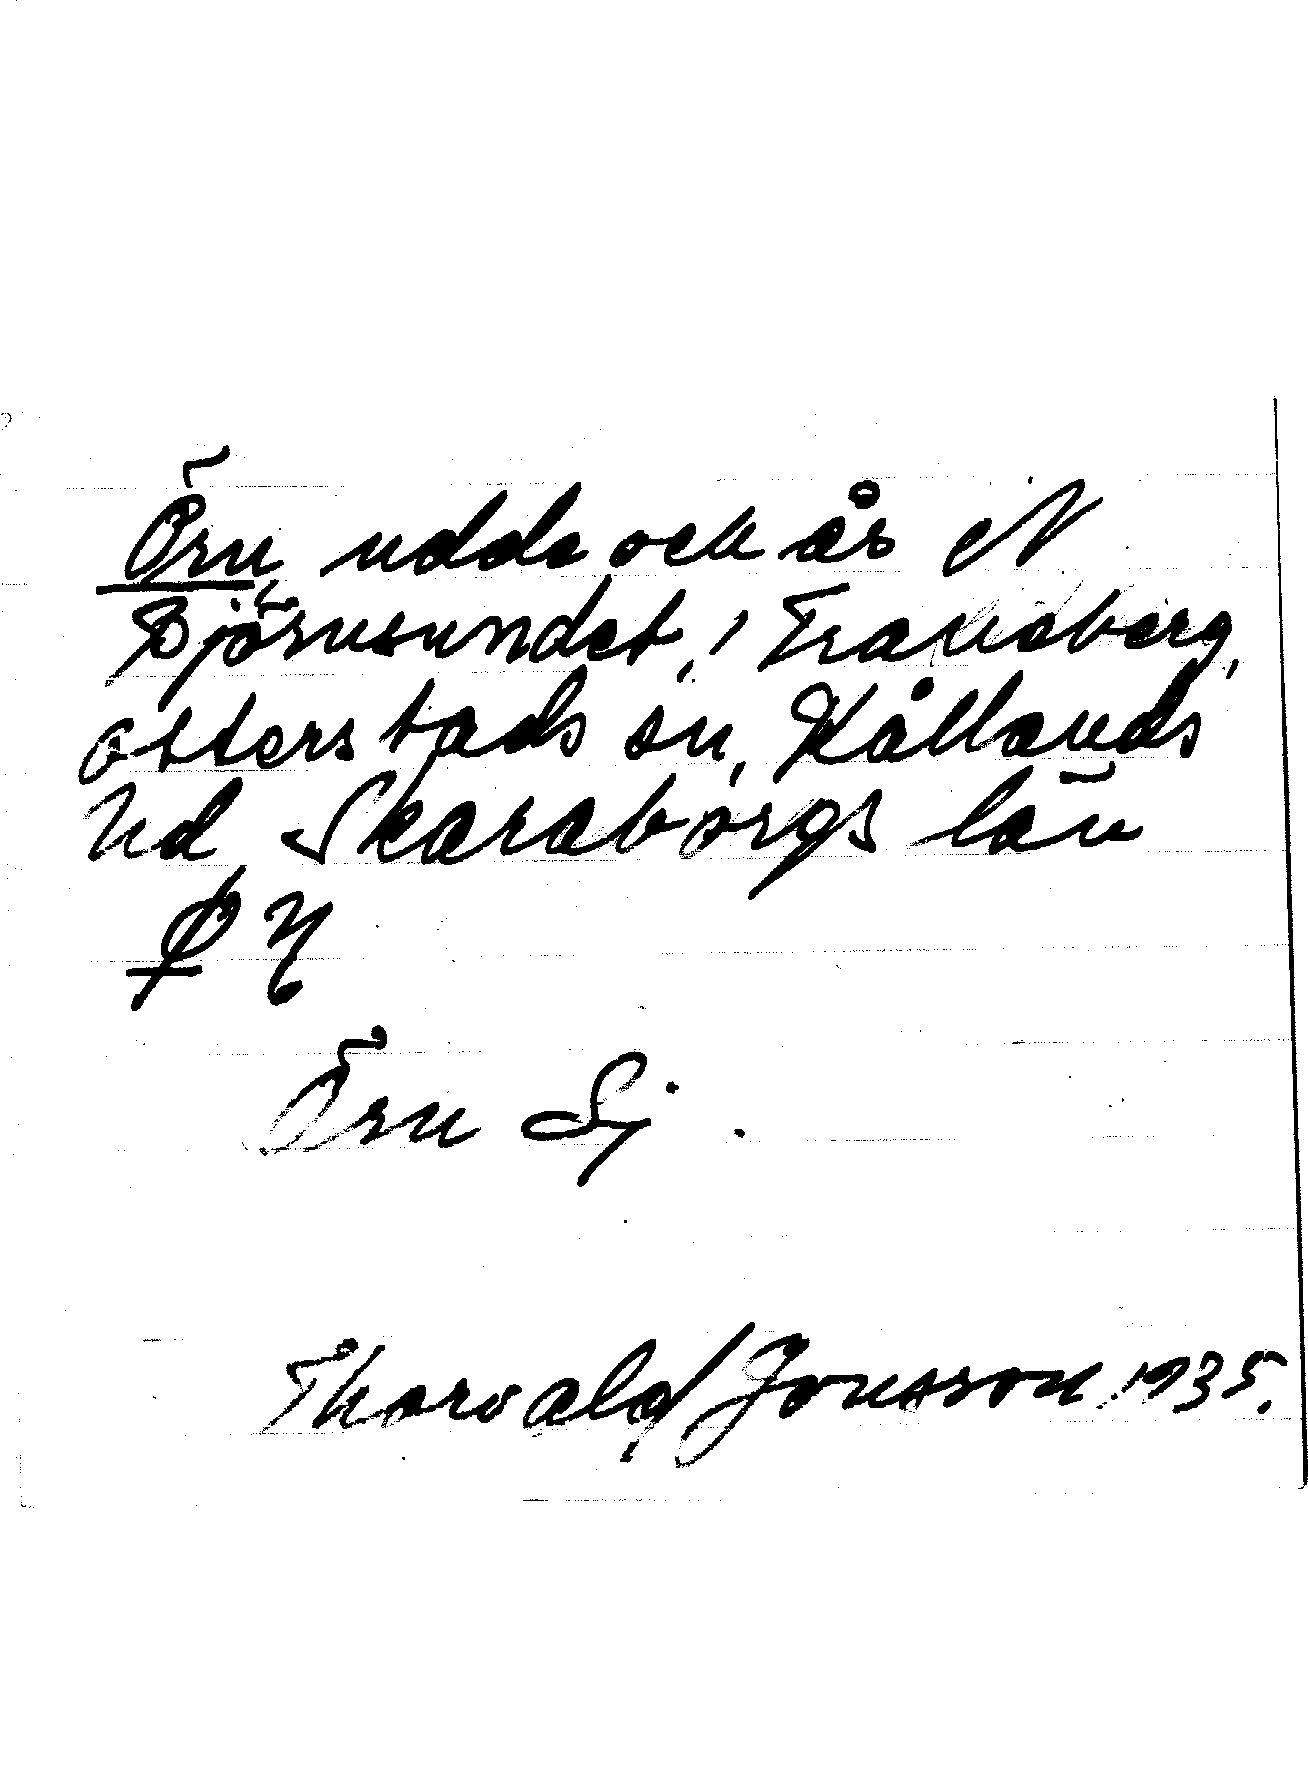 Örn, udde och ås N
Björnsundet, i Traneberg,
Otterstads sn, Kållands
hd, Skaraborgs län
Örn Sj.
Thorvald Jonsson 1935.